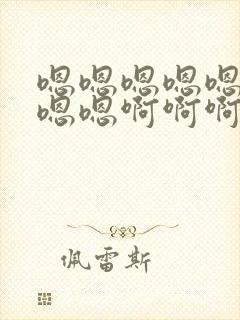 嗯嗯嗯嗯嗯
嗯嗯啊啊啊
佩雷斯